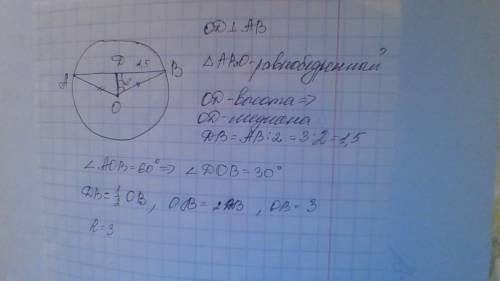 OD ⊥ AB
D 1,5
A B
O
△ABO-равнобедренный?
OD-высота =>
OD-медиана
DB = AB:2 = 3:2 = 1,5
∠AOB = 60° => ∠DOB = 30°
DB = 1/2 OB, OB = 2DB, OB = 3
R = 3